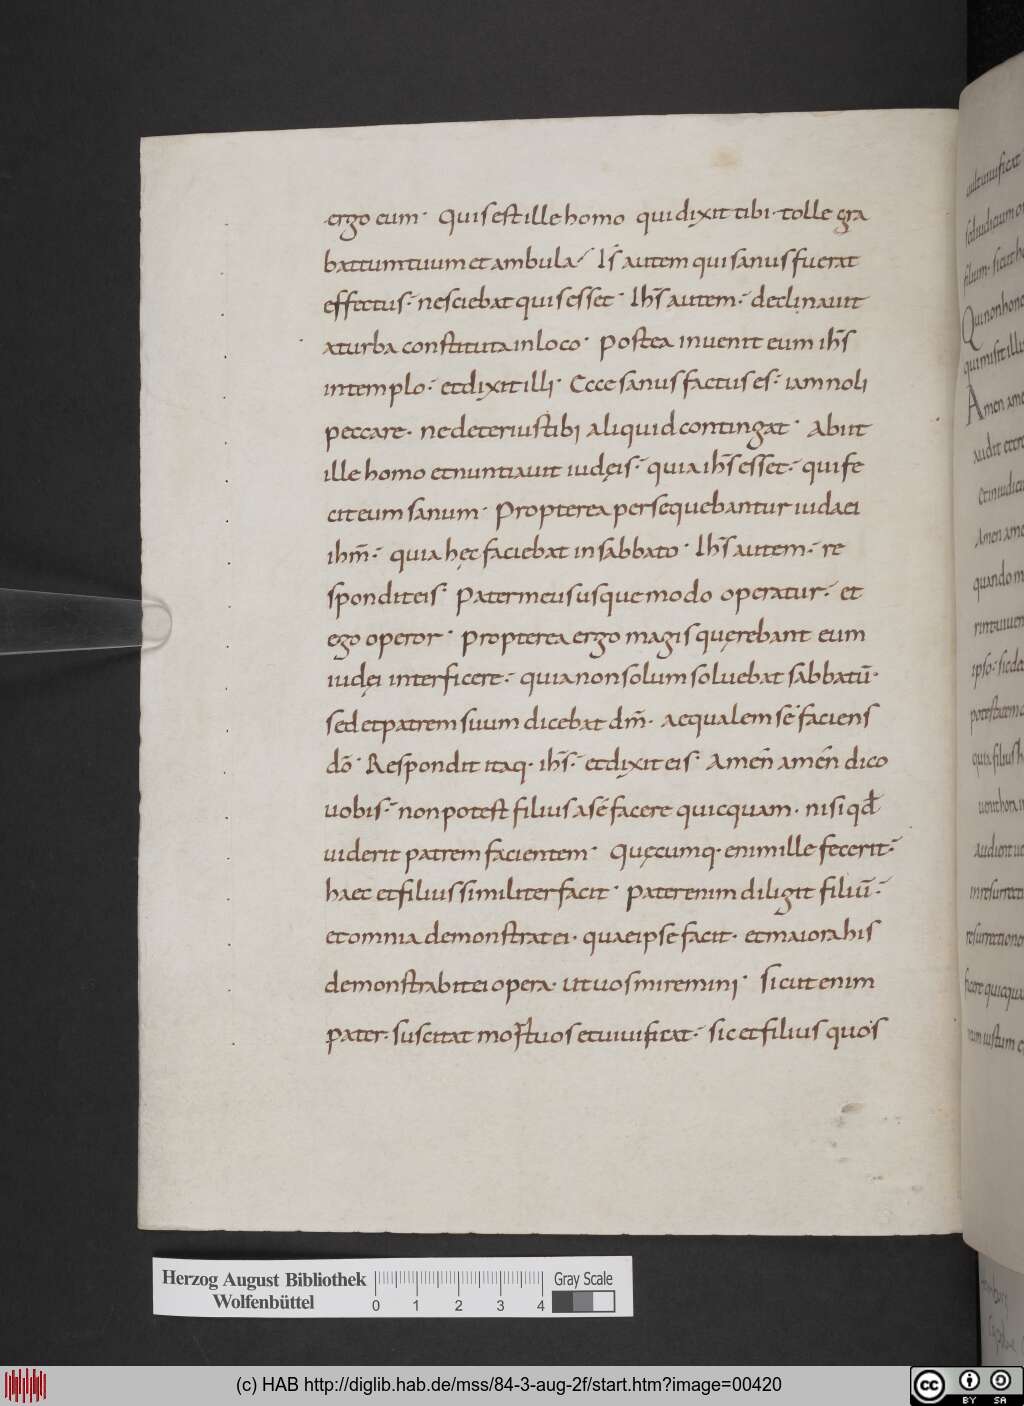 ergo eum· Quis est ille homo qui dixit tibi· tolle gra
battum tuum et ambula· Is autem qui sanus fuerat
effectus· nesciebat quis esset· Ihs̄ autem· declinavit
a turba constituta in loco· Postea invenit eum ihs̄
in templo· et dixit illi· Ecce sanus factus es· iam noli
peccare· ne deterius tibi aliquid contingat· Abiit
ille homo et nuntiavit iudęis· quia ihs̄ esset· qui fe
cit eum sanum· Propterea persequebantur iudaei
ihm̄· quia hęc faciebat in sabbato· Ihs̄ autem· re
spondit eis· Pater meus usque modo operatur· et
ego operor· propterea ergo magis quęrebant eum
iudęi interficere· quia non solum soluebat sabbatū·
sed et patrem suum dicebat dm̄· aequalem se faciens
dō· Respondit itaq· ihs̄· et dixit eis· Amen amen dico
uobis· non potest filius a se facere quicquam· nisi qđ
uiderit patrem facientem· Quęcumq· enim ille fecerit·
haec et filius similiter facit· pater enim diligit filiū·
et omnia demonstrat ei· quae ipse facit· et maiora his
demonstrabit ei opera· ut uos miremini· sicut enim
pater· suscitat mortuos et uiuificat· sic et filius quos
Herzog August Bibliothek
Wolfenbüttel
0 1 2 3 4
Gray Scale
(c) HAB http://diglib.hab.de/mss/84-3-aug-2f/start.htm?image=00420
cc BY SA